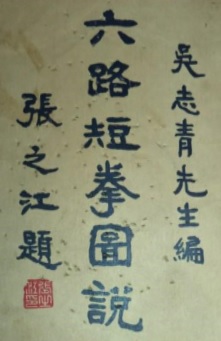 吳志青先生編
六路短拳圖說
張之江題